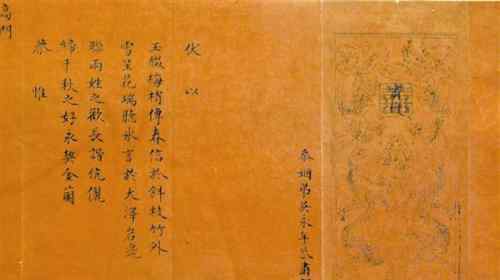 忝姻弟吳永年
伏以
玉綴梅梢傳春信於斜枝竹外
雪呈花瑞聽冰言於大澤
聯兩姓之歡長諧伉儷
締千秋之好永契金蘭
恭惟
高門